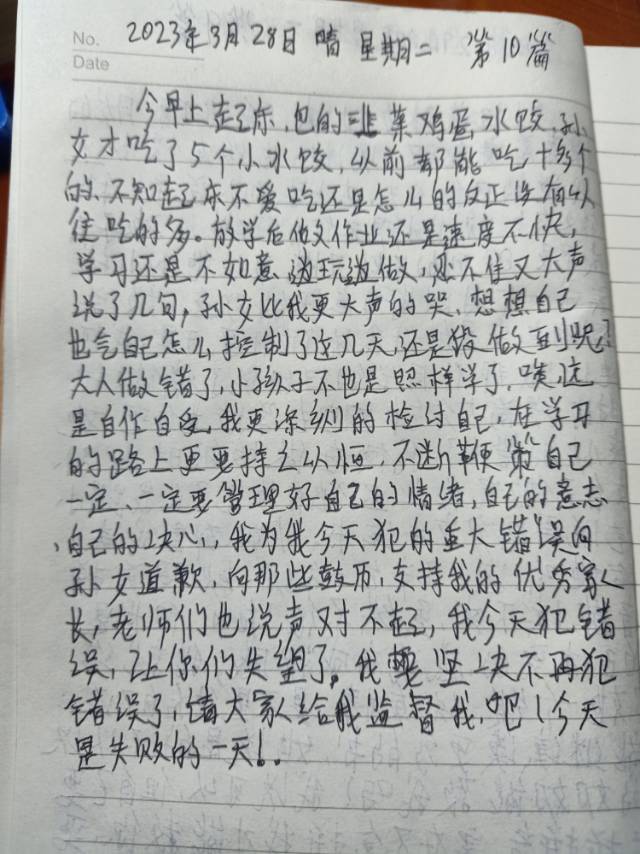 No.
Date
2023年3月28日 晴 星期二 第10篇
今早上起床,包的韭菜鸡蛋水饺,孙
女才吃了5个小水饺,从前都能吃十多个
的、不知起床不爱吃还是怎么的反正没有以
往吃的多。放学后做作业还是速度不快,
学习还是不如意边玩边做,忍不住又大声
说了几句,孙女比我更大声的哭、想想自己
也气自己怎么控制了这几天,还是没做到呢?
大人做错了,小孩子不也是照样学了,唉,这
是自作自受,我更深刻的检讨自己,在学习
的路上更要持之以恒,不断鞭策自己
一定、一定要管理好自己的情绪,自己的意志
、自己的决心,我为我今天犯的重大错误向
孙女道歉,向那些鼓励,支持我的优秀家
长,老师们也说声对不起,我今天犯错
误,让你们失望了。我要坚决不再犯
错误了,请大家给我监督我,吧!今天
是失败的一天!.